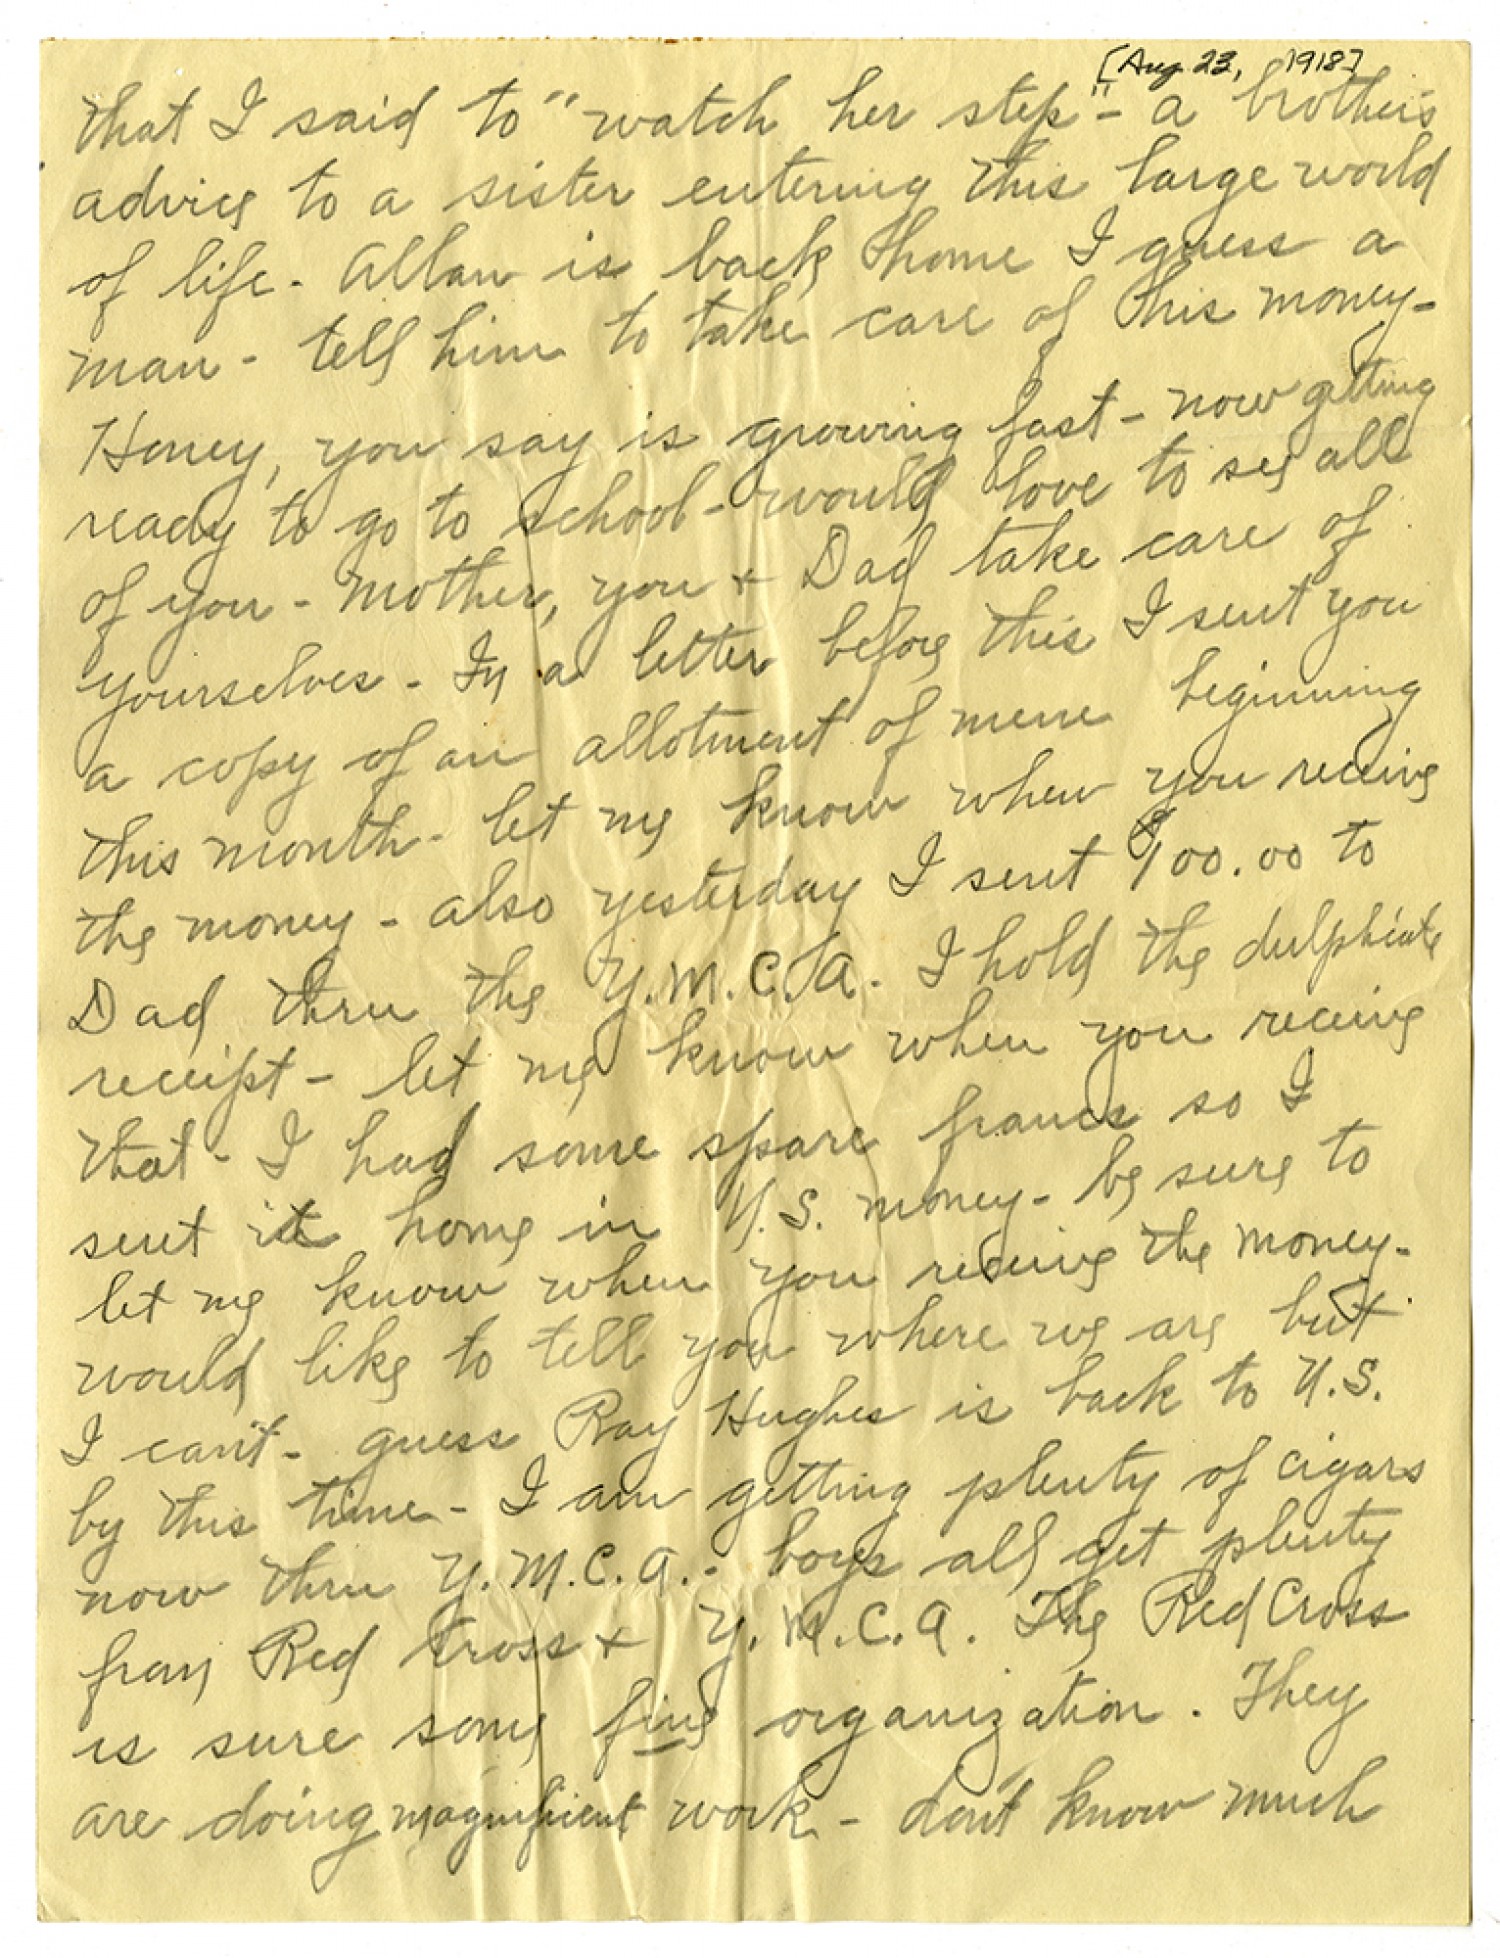 [Aug 23, 1918]
that I said to "watch her step" - a brother's
advice to a sister entering this large world
of life - Allan is back home I guess a
man - tell him to take care of his money -
Honey, you say is growing fast - now getting
ready to go to school - would love to see all
of you - Mother, you + Dad take care of
yourselves - In a letter before this I sent you
a copy of an allotment of mine beginning
this month - let me know when you receive
the money - also yesterday I sent $100.00 to
Dad thru the Y.M.C.A. I hold the dulphicate
receipt - let me know when you receive
that - I had some spare francs so I
sent it home in U.S. money - be sure to
let me know when you receive the money -
would like to tell you where we are but
I can't - guess Ray Hughes is back to U.S.
by this time - I am getting plenty of cigars
now thru Y.M.C.A. - boys all get plenty
from Red Cross + Y.M.C.A. The Red Cross
is sure some fine organization. They
are doing magnificent work - don't know much